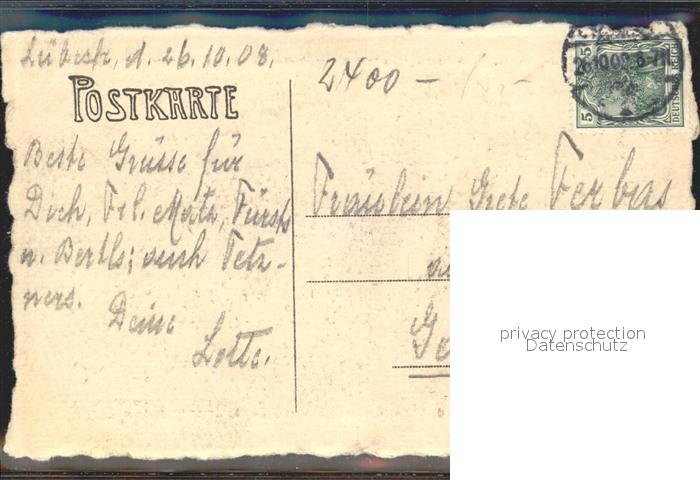 Lübeck, d. 26.10.08.
2400 –
POSTKARTE
26.10.08. 6-7N
5
5
DEUTSCHES REICH
Beste Grüsse für
Dich, Frl. Mertz, Fürsts
u. Bertls; auch Tetz-
ners.
Deine
Lotte.
Fräulein Grete Ferbas
privacy protection
Datenschutz